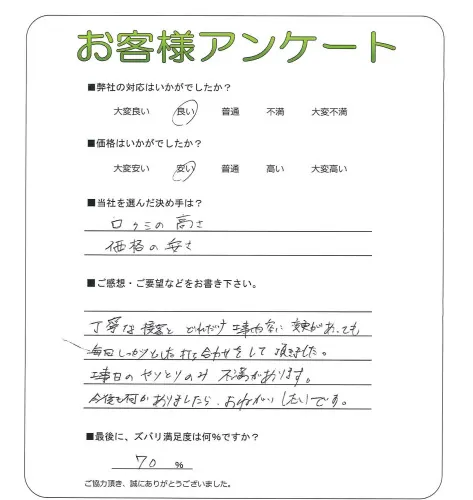 お客様アンケート
■弊社の対応はいかがでしたか?
大変良い 良い 普通 不満 大変不満
■価格はいかがでしたか?
大変安い 安い 普通 高い 大変高い
■当社を選んだ決め手は?
口クミの高さ
価格の安さ
■ご感想・ご要望などをお書き下さい。
丁寧な接客と どれだけ工事内容に変更があっても
毎日しっかりとした打ち合わせをして頂きました。
工事日のやりとりのみ不満があります。
今後も何かありましたら、おねがいしたいです。
■最後に、ズバリ満足度は何%ですか?
70 %
ご協力頂き、誠にありがとうございました。